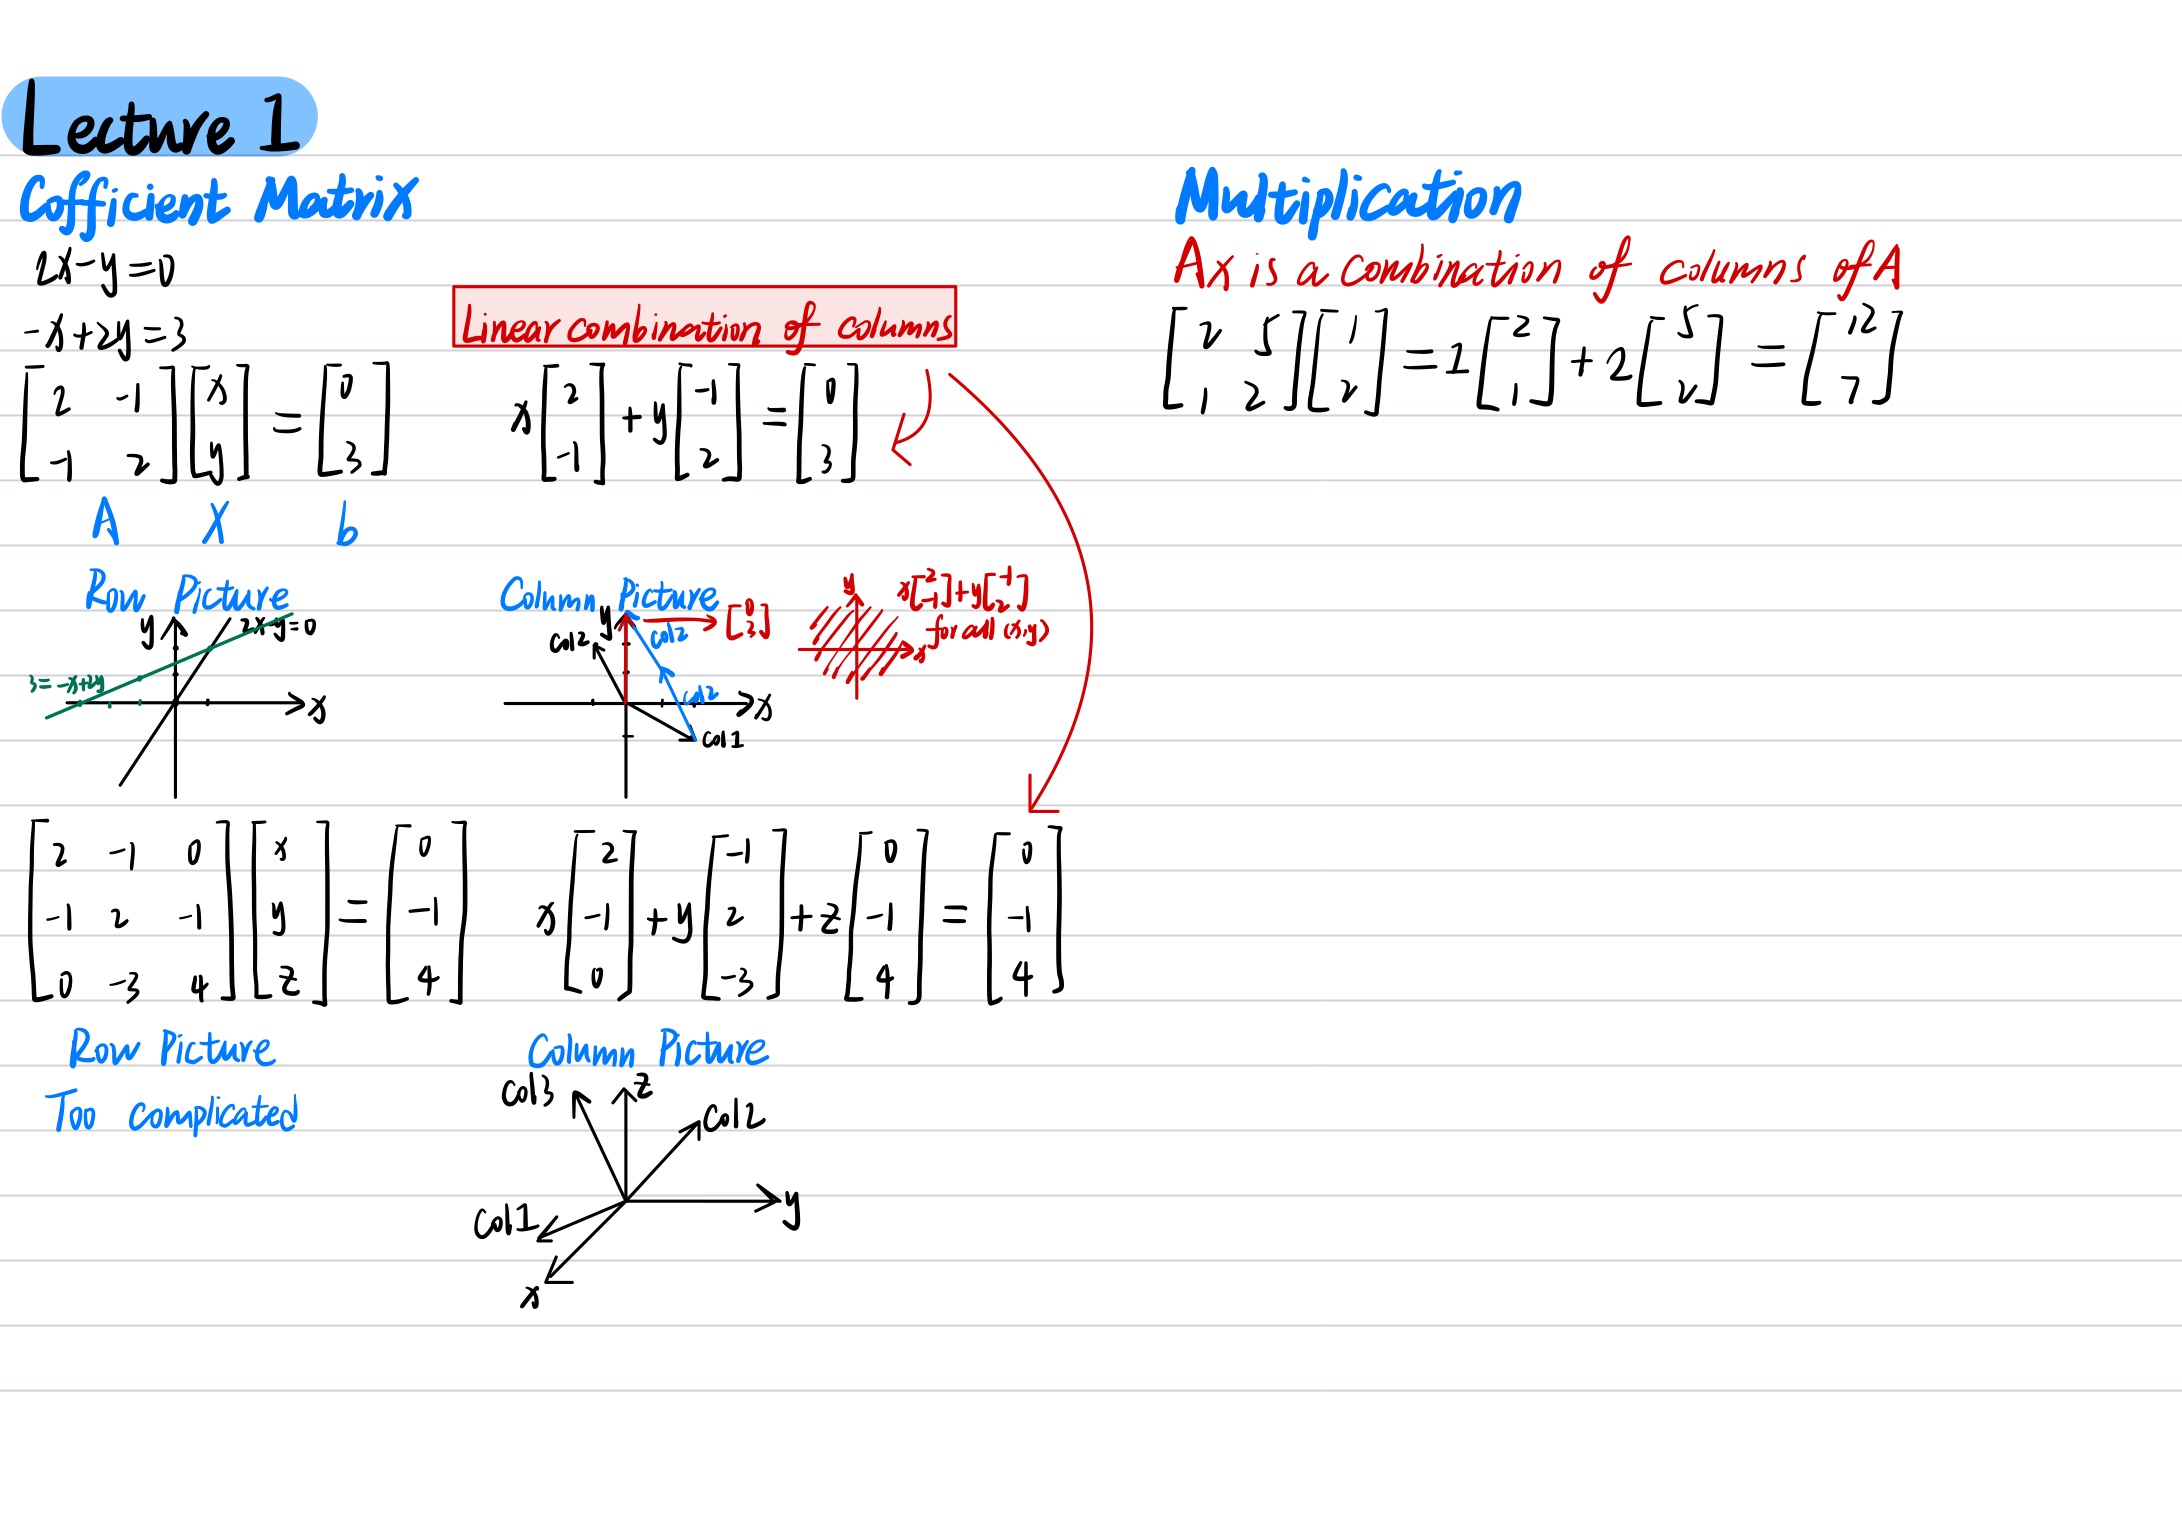 Lecture 1
Cofficient Matrix
2x-y=0
-x+2y=3
[2 -1; -1 2] [x; y] = [0; 3]
A X b
Linear combination of columns
x[2; -1] + y[-1; 2] = [0; 3]
Row Picture
y
2x-y=0
3=-x+2y
x
Column Picture
y
[0; 3]
col2
col2
col2
x
col1
y
x[2; -1]+y[-1; 2]
for all (x,y)
x
[2 -1 0; -1 2 -1; 0 -3 4] [x; y; z] = [0; -1; 4]
x[2; -1; 0] + y[-1; 2; -3] + z[0; -1; 4] = [0; -1; 4]
Row Picture
Too complicated
Column Picture
col3
z
col2
col1
y
x
Multiplication
Ax is a combination of columns of A
[2 5; 1 2] [1; 2] = 1[2; 1] + 2[5; 2] = [12; 7]